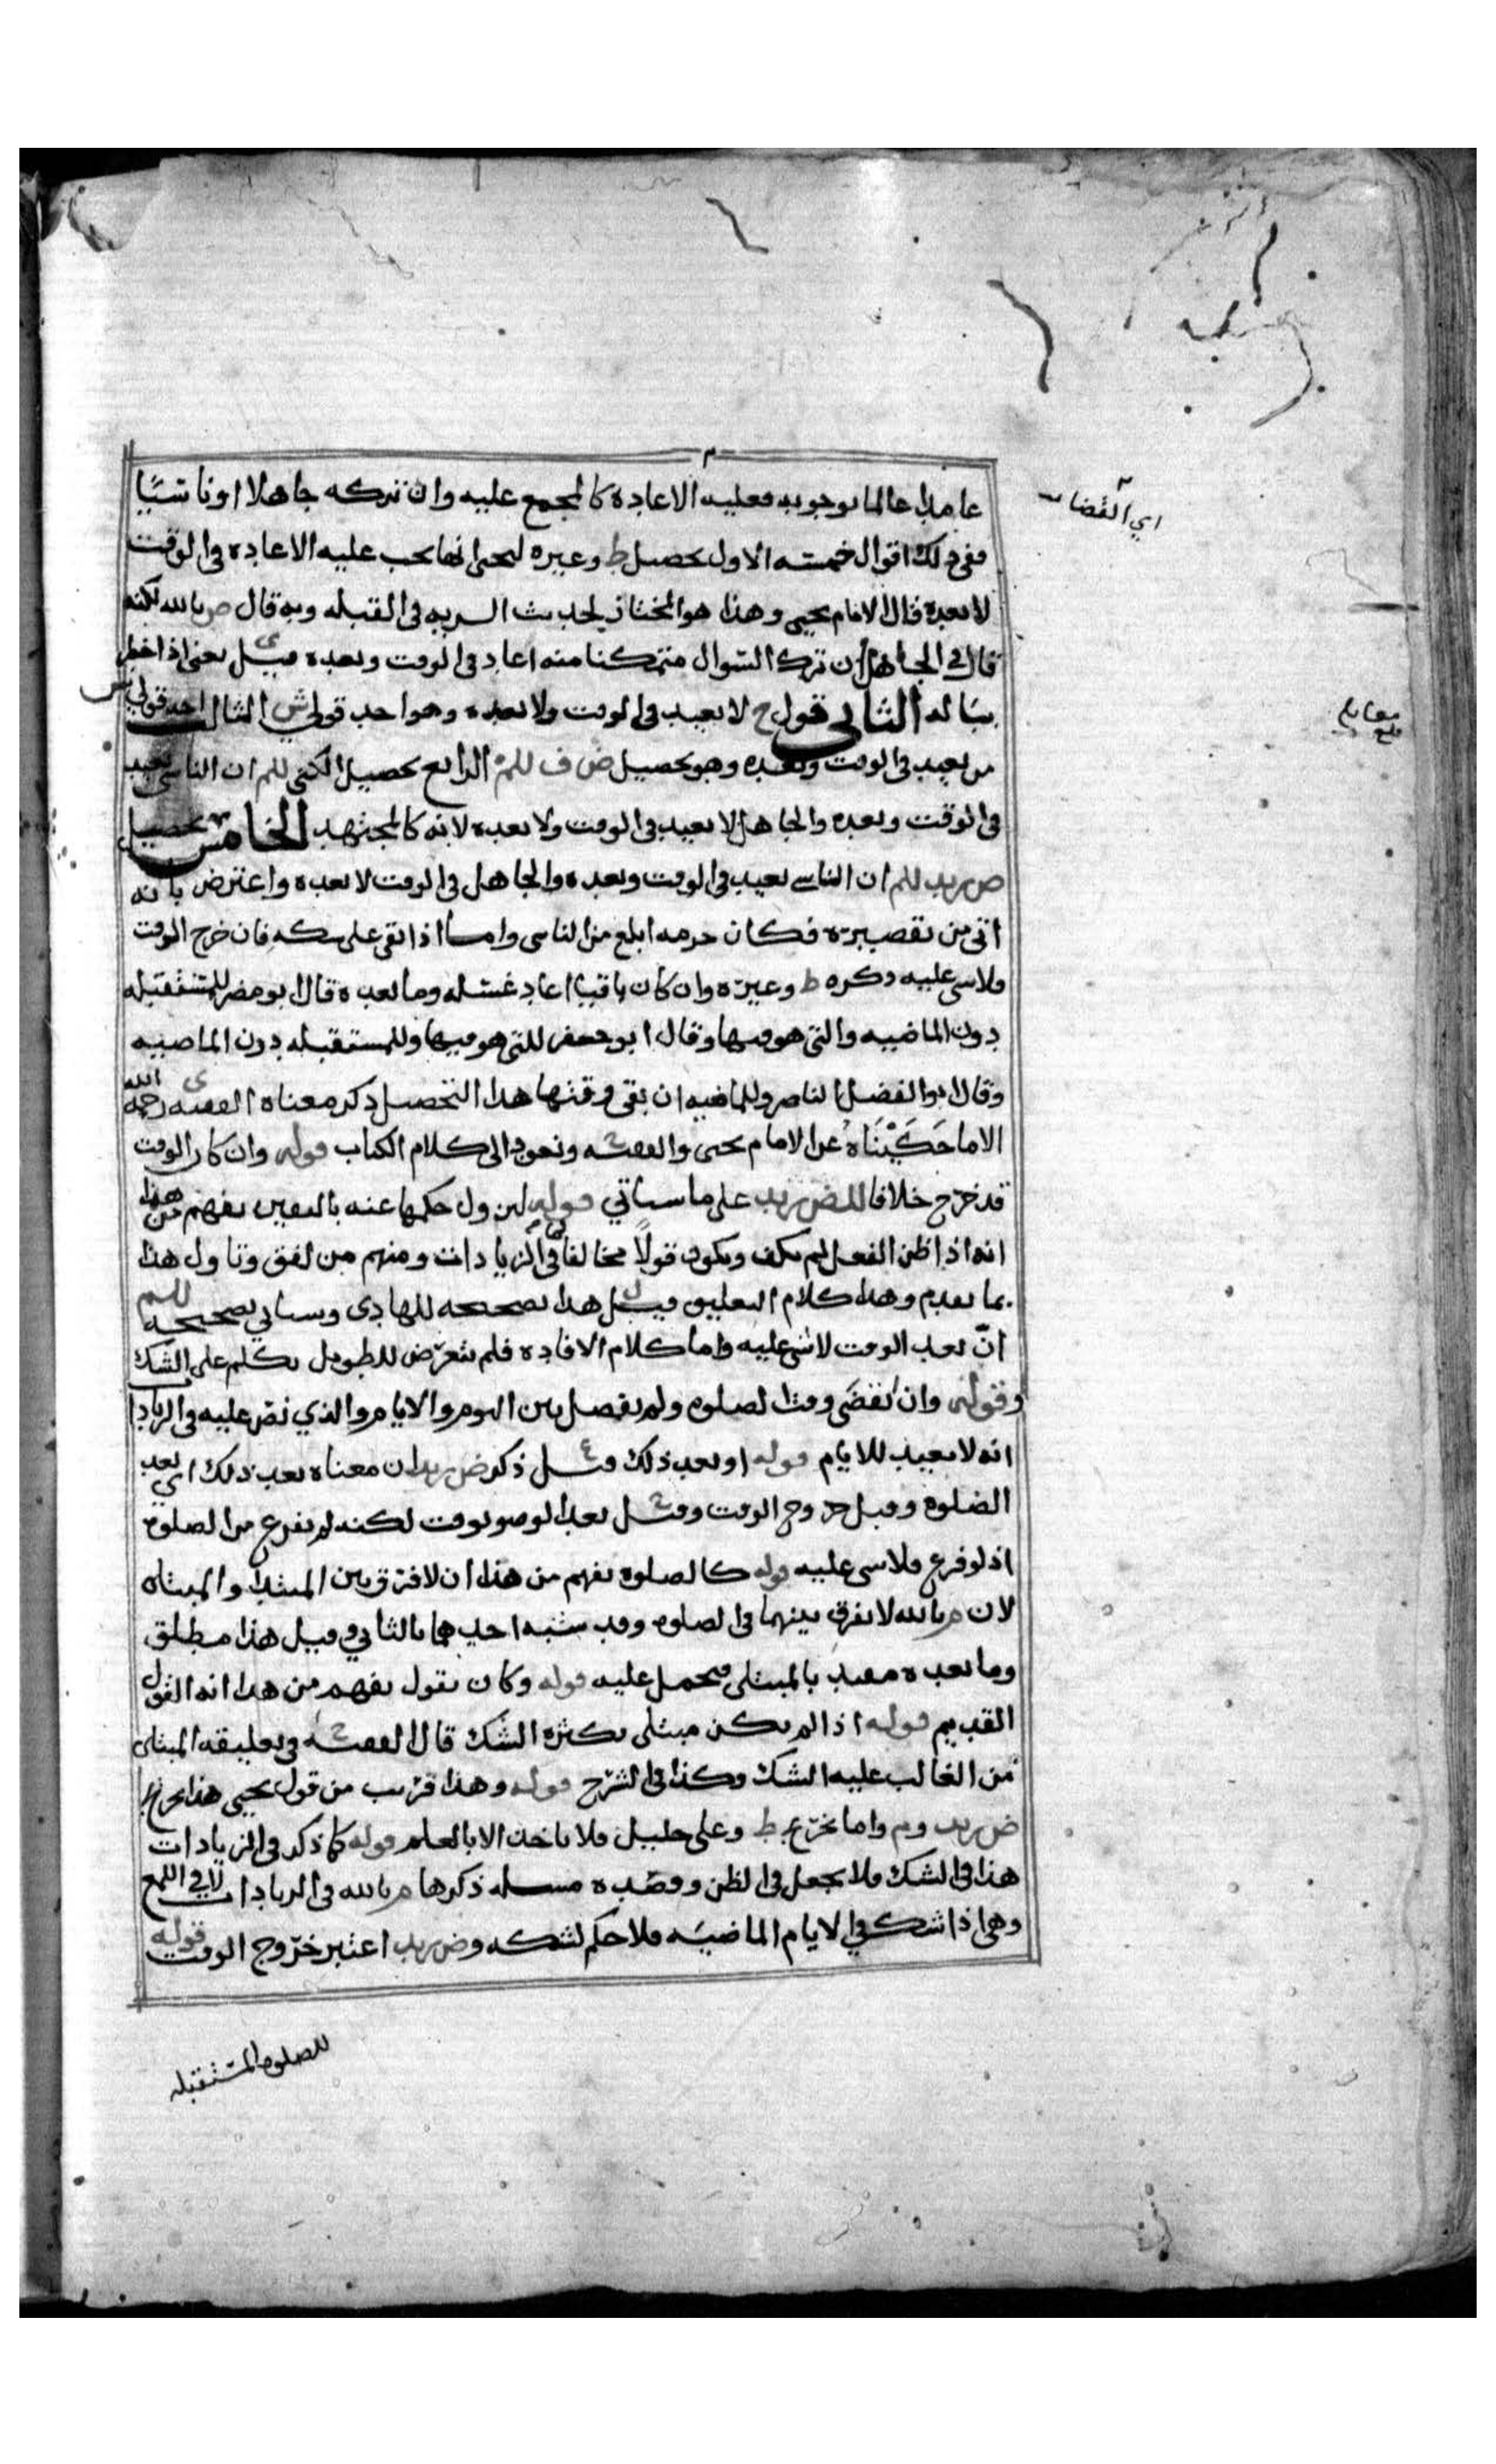 عامدا عالما بوجوبه فعليه الاعادة كالمجمع عليه وان تركه جاهلا او ناسيًا
ففي ذلك اقوال خمسة الاول تحصيل ط وغيره ليحيى انها يجب عليه الاعادة في الوقت
لا بعده قال الامام يحيى وهذا هو المختار لحديث السرية في القبلة وبه قال م بالله لكنه
قال في الجاهل ان ترك السوال متمكنا منه اعاد في الوقت وبعده قيل ى يعني اذا خطر
بباله الثاني قول ح لا يعيد في الوقت ولا بعده وهو احد قولي ش الثالث احد قولي ش
من يعيد في الوقت وبعده وهو تحصيل ض ف للم الرابع تحصيل الكني للم ان الناسي يعيد
في الوقت وبعده والجاهل لا يعيد في الوقت ولا بعده لانه كالمجتهد الخامس تحصيل
ض زيد للم ان الناسي يعيد في الوقت وبعده والجاهل في الوقت لا بعده واعترض بانه
اتى من تقصيره فكان جرمه ابلغ من الناسي واما اذا بقي على شكه فان خرج الوقت
فلا شي عليه ذكره ط وغيره وان كان باقيا اعاد غسله وما بعده قال ابو مضر للمستقبله
دون الماضيه والتي هو فيها وقال ابو جعفر للتي هو فيها وللمستقبله دون الماضيه
وقال ابو الفضل الناصر وللماضيه ان بقي وقتها هذا التحصيل ذكر معناه الفقيه ى رحمه الله
الا ما حَكَيْنَاهُ عن الامام يحيى والفقيه ونعود الى كلام الكتاب قوله وان كان الوقت
قد خرج خلافا للض زيد على ما سياتي قوله لزول حكمها عنه باليقين يفهم من هذا
انه اذا ظن الفعل لم يكف ويكون قولاً مخالفا لما في الزيادات ومنهم من لفق وتاول هذا
بما تقدم وهذا كلام التعليق قيل ل هذا تصحيحه للهادي وسياتي تصحيحه للم
انّ بعد الوقت لا شي عليه واما كلام الافادة فلم يتعرّض للطويل تكلم على الشك
وقوله وان انقضى وقت الصلوة ولم يفصل بين اليوم والايام والذي نص عليه في الزيادات
انه لا يعيد للايام قوله او بعد ذلك قيل ع ذكر ض زيد ان معناه بعد ذلك اي بعد
الصلوة وقبل خروج الوقت وقيل بعد الوضو بوقت لكنه لم يفرغ من الصلوة
اذ لو فرغ فلا شي عليه قوله كالصلوة يفهم من هذا ان لا فرق بين المبتدا والمبتلى
لان م بالله لا يفرق بينهما في الصلوة وقد شبه احدهما بالثاني وقيل هذا مطلق
وما بعده مقيد بالمبتلى فيحمل عليه قوله وكان يقول يفهم من هذا انه القول
القديم قوله اذا لم يكن مبتلى بكثرة الشك قال الفقيه في تعليقه المبتلى
من الغالب عليه الشك وكذا في الشرح قوله وهذا قريب من قول يحيى هذا تخريج
ض زيد وم واما تخريج ط وعلى خليل فلا ياخذ الا بالعلم قوله كما ذكر في الزيادات
هذا في الشك فلا يجعل في الظن وقصده مسله ذكرها م بالله في الزيادات لا في اللمع
وهي اذا شك في الايام الماضيه فلا حكم لشكه وض زيد اعتبر خروج الوقت قوله
للصلوه المستقبله
اي القضا